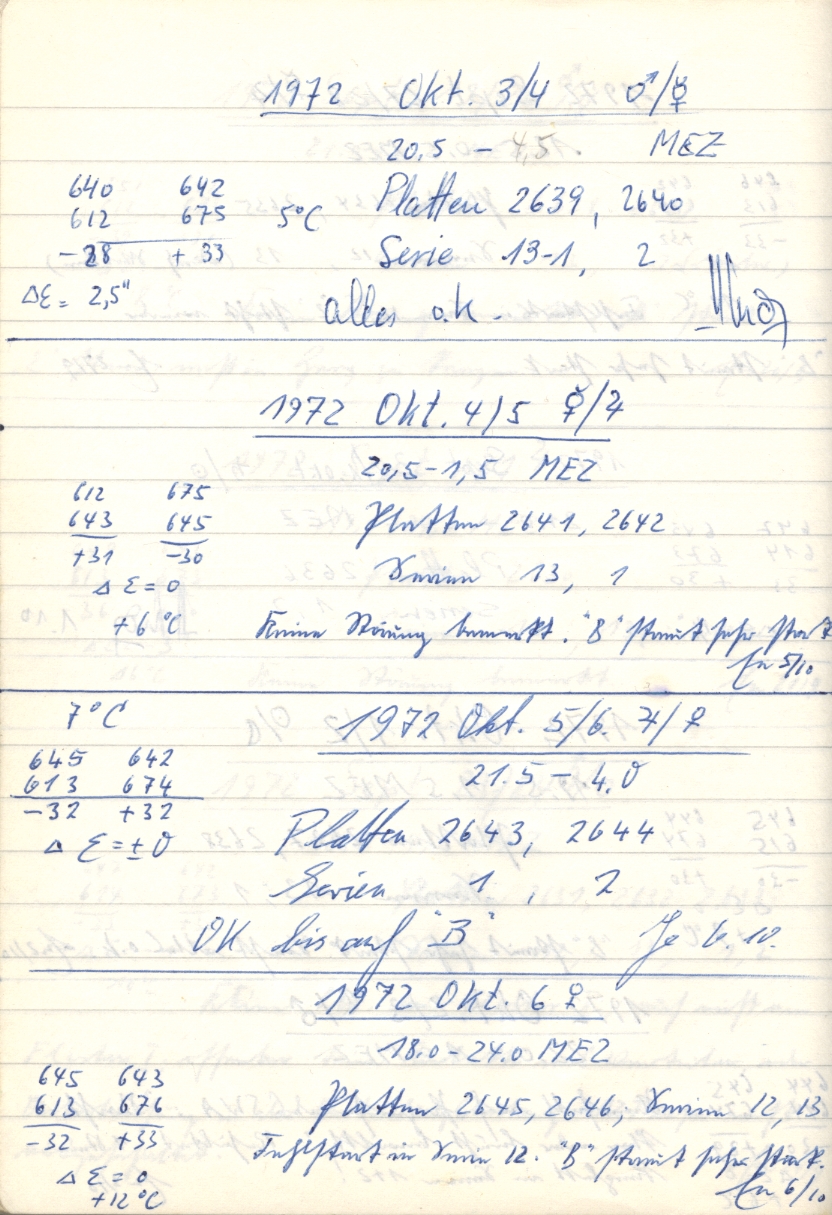 1972 Okt. 3/4 ♂/☿
20,5 – 4,5. MEZ
640 642
612 675 5°C Platten 2639, 2640
-28 + 33 Serie 13-1, 2
Δε = 2,5" alles o.k.
1972 Okt. 4/5 ☿/♃
20,5-1,5 MEZ
612 675
643 645 Platten 2641, 2642
+31 -30
Δε = 0 Serien 13, 1
+6°C
Keine Störung bemerkt. "B" streut sehr stark
5/10
7°C 1972 Okt. 5/6. ♃/♀
645 642
613 674 21.5 – 4.0
-32 +32
Δε = ±0 Platten 2643, 2644
Serien 1, 2
OK bis auf "B" Je 6. 10.
1972 Okt. 6 ♀
18.0-24.0 MEZ
645 643
613 676 Platten 2645, 2646, Serien 12, 13
-32 +33
Fehlstart in Serie 12. "B" streut sehr stark.
Δε = 0 6/10
+12°C